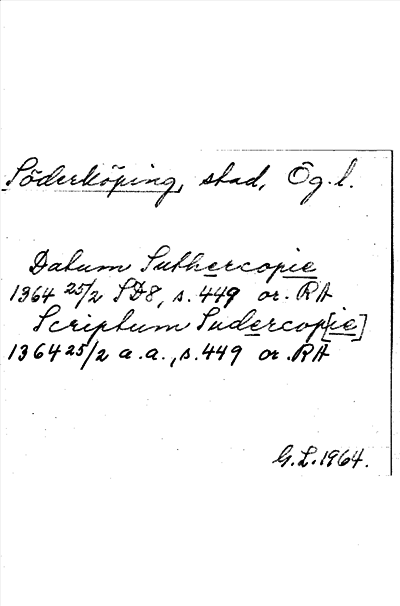 Söderköping, stad, Ög. l.
Datum Suthercopie
1364 25/2 SD8, s. 449 or. RA
Scriptum Sudercop[ie]
1364 25/2 a. a., s. 449 or. RA
G. L. 1964.